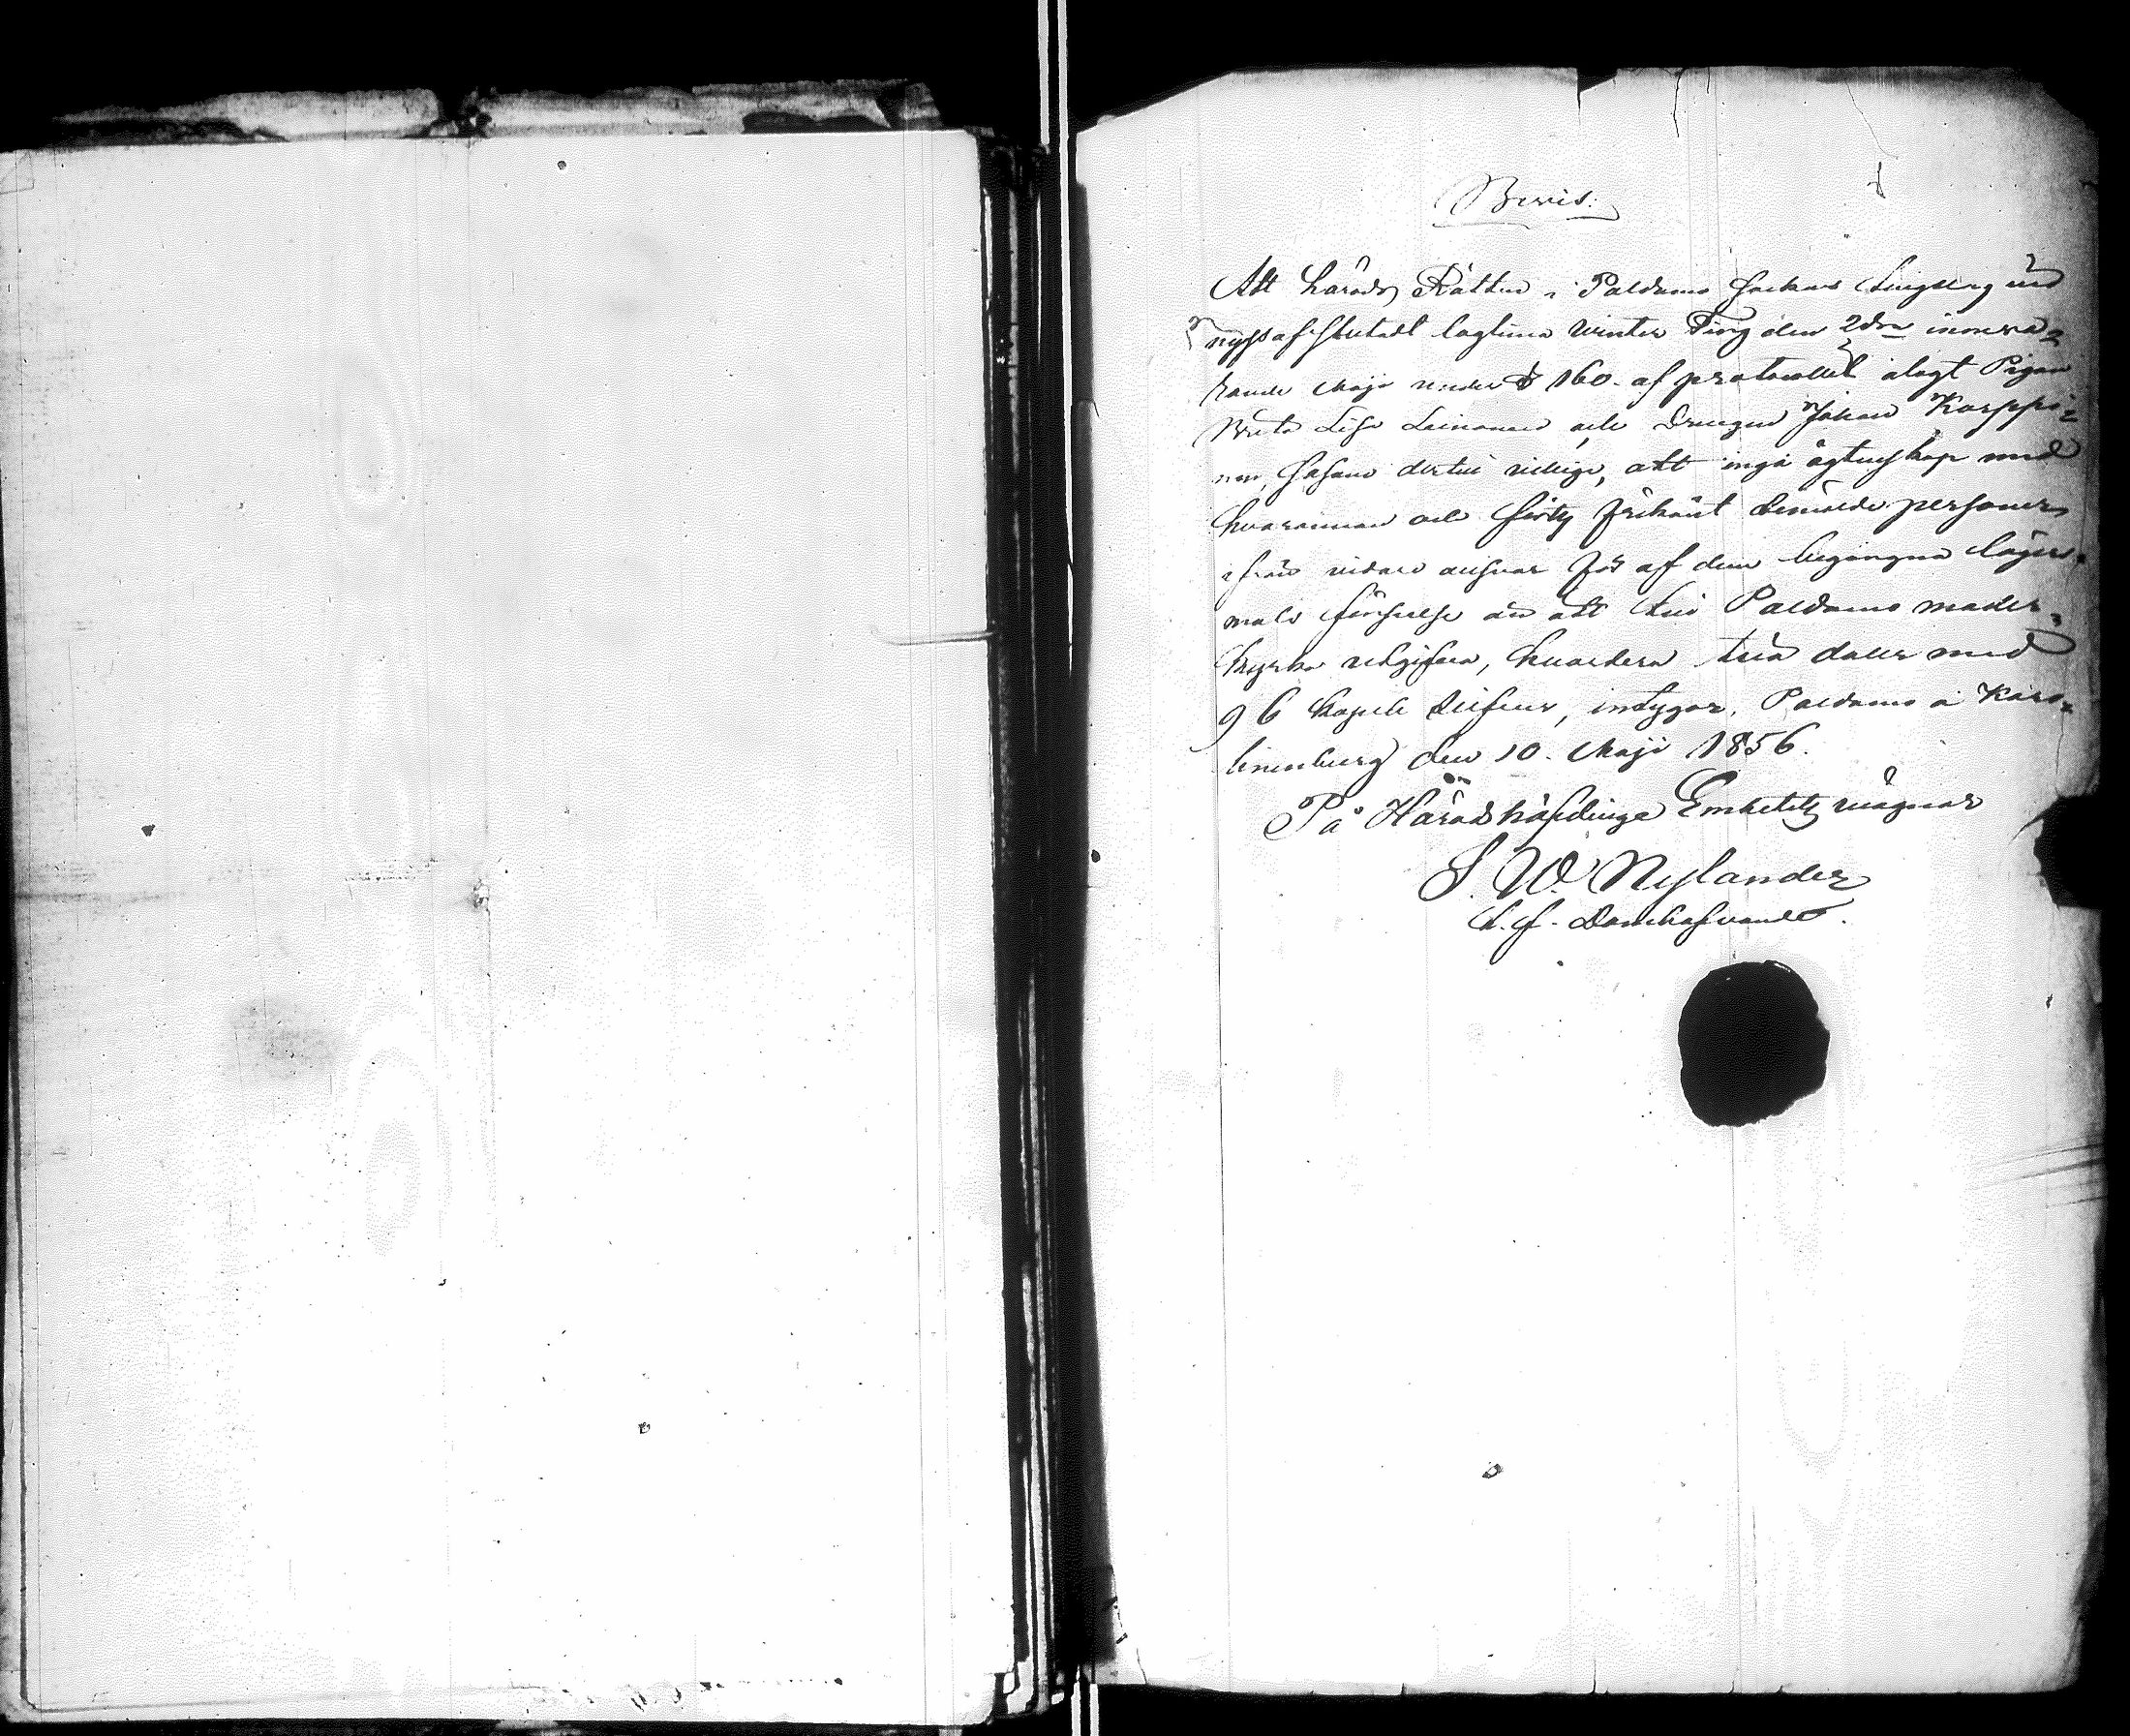 Bevis.
Att Härads Rätten i Paldamo Sockens tingslag vid
nyss afslutadt lagtima Winter Ting den 2dra innewa=
rande Maji under § 160. af protocollet ålagt Pigan
Brita Lisa Leinonen och Drengen Johan Karppi=
nen, såsom dertill villige, att ingå ägtenskap med
hvarannan och sist frikänt bemälde personer
ifrån vidare answar för af dem begångna lägers=
måls förseelse än att till Paldamo moder=
kyrka utgifva, hvardera två daler med
96 kopek silfver, intygar, Paldamo å Karo=
lineburg den 10. Maji 1856.
På Häradshöfdinge Embetets vägnar
S. W. Nylander
t.f. Domhafvande.